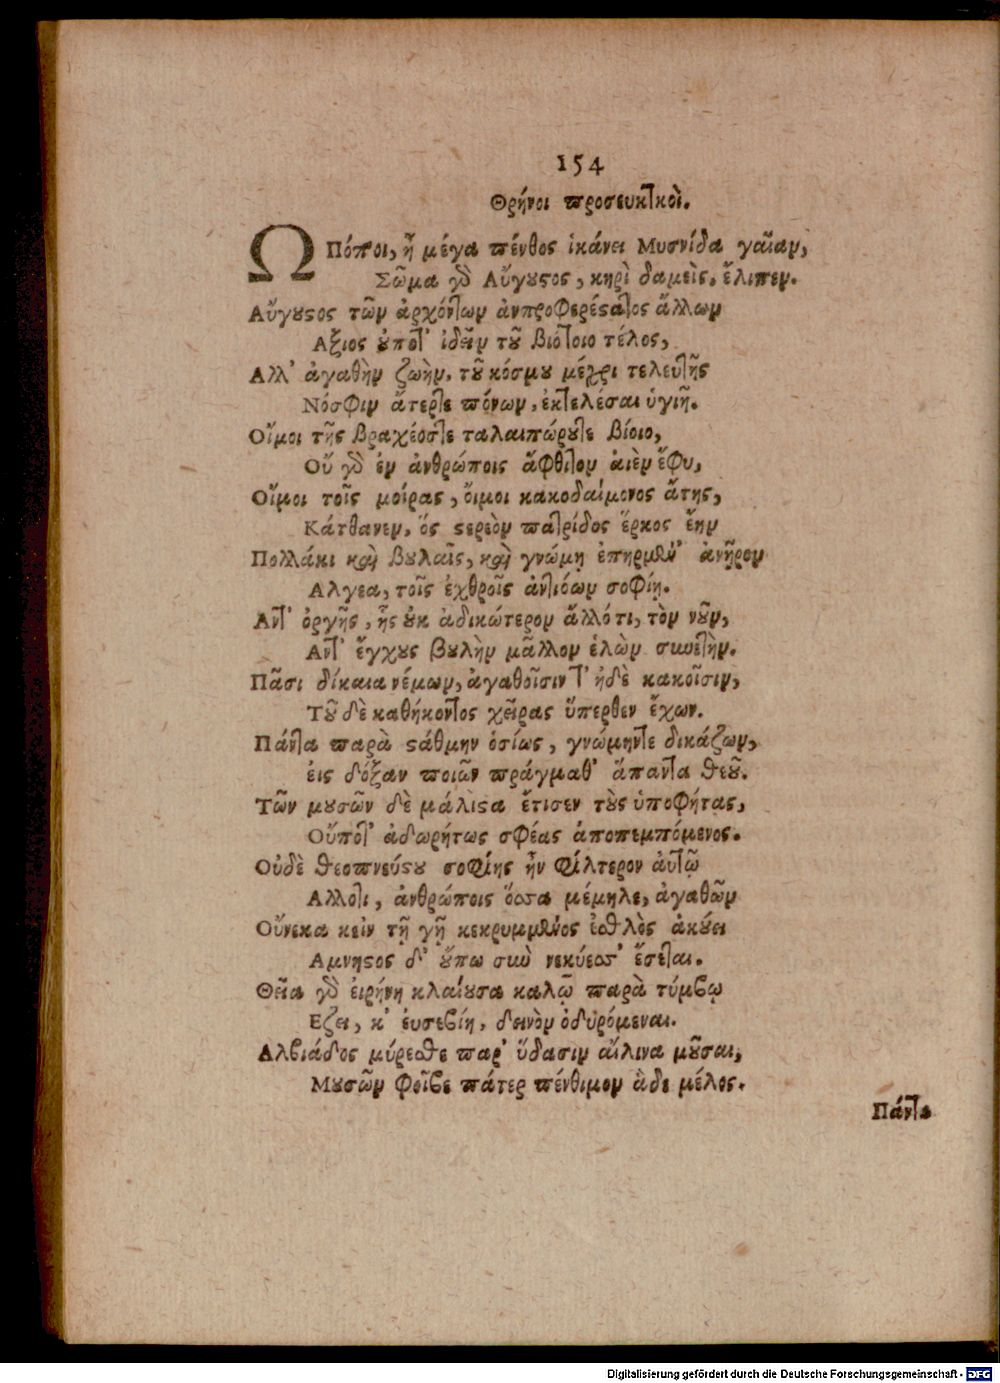 154
Θρήνοι προσευκτικοὶ.
Ω Πόποι, ἦ μέγα πένθος ἱκάνει Μυσνίδα γαῖαν,
Σῶμα γὸ Αὔγουστος, κηρὶ δαμεὶς, ἔλιπεν.
Αὔγουστος τῶν ἀρχόντων ἀνπροφερέστατος ἄλλων
Αξιος οὐποτ' ἰδεῖν τοῦ βιότοιο τέλος,
Αλλ' ἀγαθὴν ζωὴν, τοῦ κόσμου μέχρι τελευτῆς
Νόσφιν ἄτερτε πόνων, ἐκτελέσαι ὑγιῆ.
Οἴμοι τῆς βραχέοστε ταλαιπώρουτε βίοιο,
Οὔ γὸ ἐν ἀνθρώποις ἄφθιτον ἀιὲν ἔφυ,
Οἴμοι τοῖς μοίρας, ὄιμοι κακοδαίμονος ἄτης,
Κάτθανεν, ὅς στερεὸν πατρίδος ἕρκος ἔην
Πολλάκι καὶ βουλαῖς, καὶ γνώμῃ ἐπηρμέν' ἀνῇρον
Αλγεα, τοῖς ἐχθροῖς ἀντιόων σοφίῃ.
Αντ' ὀργῆς, ἧς οὐκ ἀδικώτερον ἄλλό τι, τὸν νοῦν,
Αντ' ἔγχους βουλὴν μᾶλλον ἑλὼν συνετὴν.
Πᾶσι δίκαια νέμων, ἀγαθοῖσιν τ' ἠδὲ κακοῖσιν,
Τοῦ δὲ καθήκοντος χεῖρας ὕπερθεν ἔχων.
Πάντα παρὰ στάθμην ὁσίως, γνώμηντε δικάζων,
εἰς δόξαν ποιῶν πράγμαθ' ἅπαντα θεοῦ.
Τῶν μουσῶν δὲ μάλιστα ἔτισεν τοὺς ὑποφήτας,
Οὔποτ' ἀδωρήτως σφέας ἀποπεμπόμενος.
Οὐδὲ θεοπνεύστου σοφίης ἦν φίλτερον ἀυτῷ
Αλλοτι, ἀνθρώποις ὅσσα μέμηλε, ἀγαθῶν
Οὕνεκα κεὶν τῇ γῇ κεκρυμμένος ἐσθλὸς ἀκούει
Αμνηστος δ' οὔπω σὺν νεκύεσσ' ἔσεται.
Θεῖα γὸ ἐιρήνη κλαίουσα καλῷ παρὰ τύμβῳ
Εζει, κ' ἐυσεβίη, δεινὸν ὀδυρόμεναι.
Αλβιάδος μύρεσθε παρ' ὕδασιν αἴλινα μοῦσαι,
Μουσῶν φοῖβε πάτερ πένθιμον ἆδε μέλος.
Πάντα
Digitalisierung gefördert durch die Deutsche Forschungsgemeinschaft - DFG